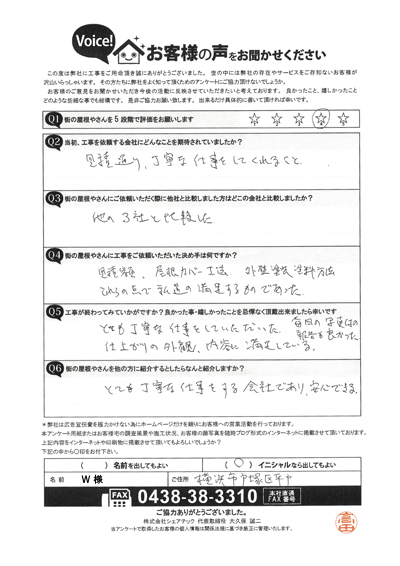 Voice!
お客様の声をお聞かせください
この度は弊社に工事をご用命頂き誠にありがとうございました。世の中には弊社の存在やサービスをご存知ないお客様が
沢山いらっしゃいます。その方たちに弊社をよく知って頂くためのアンケートにご協力頂けないでしょうか。
お客様のご意見をお聞かせいただき今後の活動に反映させていただきたいと考えております。良かったこと、嬉しかったこと
どのような些細な事でも結構です。是非ご協力お願い致します。出来るだけ具体的に書いて頂ければ幸いです。
Q1 街の屋根やさんを5段階で評価をお願いします
Q2 当初、工事を依頼する会社にどんなことを期待されていましたか?
見積通り、丁寧な仕事をしてくれること。
Q3 街の屋根やさんにご依頼いただく際に他社と比較しました方はどこの会社と比較しましたか?
他の3社と比較した
Q4 街の屋根やさんに工事をご依頼いただいた決め手は何ですか?
見積額、屋根カバー工法、外壁塗装塗料方法
これらの点で私達の満足するものであった。
Q5 工事が終わってみていかがですか?良かった事・嬉しかったことを忌憚なく頂戴出来ましたら幸いです
とても丁寧な仕事をしていただいた。毎回の写真付の
報告も良かった
仕上がりの外観、内容に満足している。
Q6 街の屋根やさんを他の方に紹介するとしたらなんと紹介しますか?
とても丁寧な仕事をする会社であり、安心できる。
*弊社は広告宣伝費を極力かけない為にホームページだけを頼りにお客様への営業活動を行っております。
本アンケート用紙またはお客様宅の調査風景や施工状況、お客様の顔写真を随時ブログ形式のインターネットに掲載させて頂いております。
上記内容をインターネットや印刷物に掲載させて頂いてもよろしいでしょうか?
下記の中から○印をお付下さい。
( ) 名前を出してもよい
(○) イニシャルなら出してもよい
名前 W様
ご住所 横浜市戸塚区
FAX 0438-38-3310 本社直通 FAX番号
ご協力ありがとうございました。
株式会社シェアテック 代表取締役 大久保 誠二
当アンケートで取得したお客様の個人情報は関係法規に基づき厳正に管理いたします。